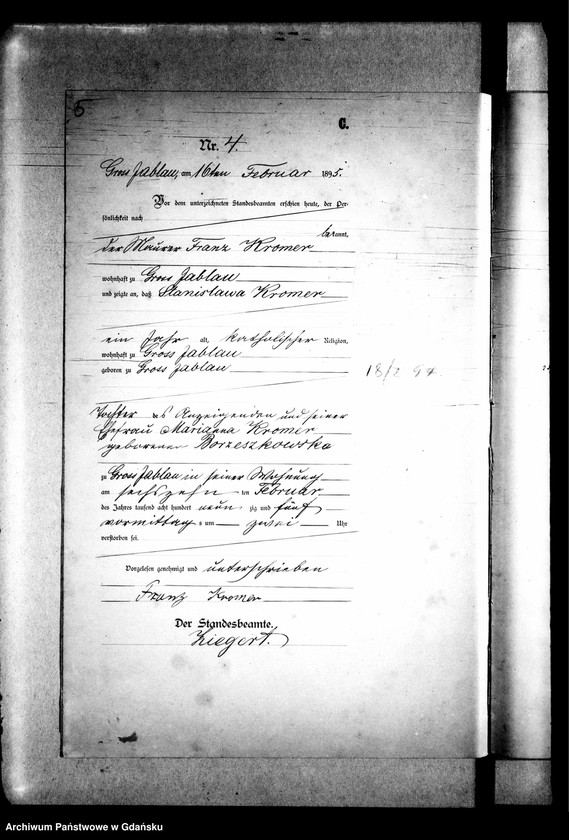 5
C.
Nr. 4.
Gross Jablau, am 16ten Februar 1895.
Vor dem unterzeichneten Standesbeamten erschien heute, der Per-
sönlichkeit nach
bekannt,
der Maurer Franz Kromer
wohnhaft zu Gross Jablau
und zeigte an, daß Stanislawa Kromer
ein Jahr alt, katholischer Religion,
wohnhaft zu Gross Jablau
geboren zu Gross Jablau
18/2 94
Tochter des Anzeigenden und seiner
Ehefrau Marianna Kromer
geborenen Borzeszkowska
zu Gross Jablau in seiner Wohnung
am sechszehn ten Februar
des Jahres tausend acht hundert neun zig und fünf
vormittag s um zwei Uhr
verstorben sei.
Vorgelesen genehmigt und unterschrieben
Franz Kromer
Der Standesbeamte.
Ziegert.
Archiwum Państwowe w Gdańsku